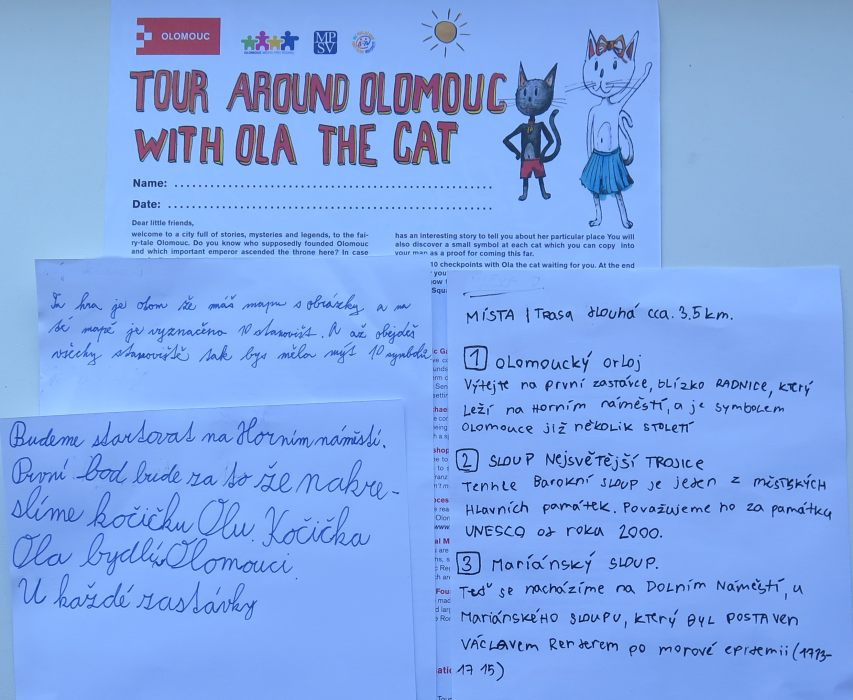 OLOMOUC
MP
SV
TOUR AROUND OLOMOUC
WITH OLA THE CAT
Name:
Date:
Dear little friends,
welcome to a city full of stories, mysteries and legends, to the fai-
ry-tale Olomouc. Do you know who supposedly founded Olomouc
and which important emperor ascended the throne here? In case
has an interesting story to tell you about her particular place You will
also discover a small symbol at each cat which you can copy into
your map as a proof for coming this far.
10 checkpoints with Ola the cat waiting for you. At the end
Ta hra je otom že máš mapu s obrázky a na
té mapě je vyznačeno 10 stanovišť. A až obejdeš
všechy stanoviště tak bys měla mýt 10 symbolů
Budeme startovat na Horním náměstí.
První bod bude za to že nakre-
slíme kočičku Olu. Kočička
Ola bydlí v Olomouci.
U každé zastávky
MÍSTA | Trasa dlouhá cca. 3.5 km.
1 OLOMOUCKÝ ORLOJ
Výtejte na první zastávce, blízko RADNICE, který
Leží na Horním náměstí, a je symbolem
olomouce již několik století
2 SLOUP NEJSVĚTĚJŠÍ TROJICE
Tenhle Barokní SLOUP je jeden z městských
Hlavních památek. Považujeme ho za památku
UNESCO od roku 2000.
3 Mariánský SLOUP.
Teď se nacházíme na Dolním Náměstí, u
Mariánského SLOUPU, který BYL POSTAVEN
VÁCLAVEM Renderem po morové epidemii (1713-
1715)